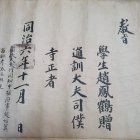 敎旨
學生趙鳳鶴贈
通訓大夫司僕
寺正者
同治六年十一月　日